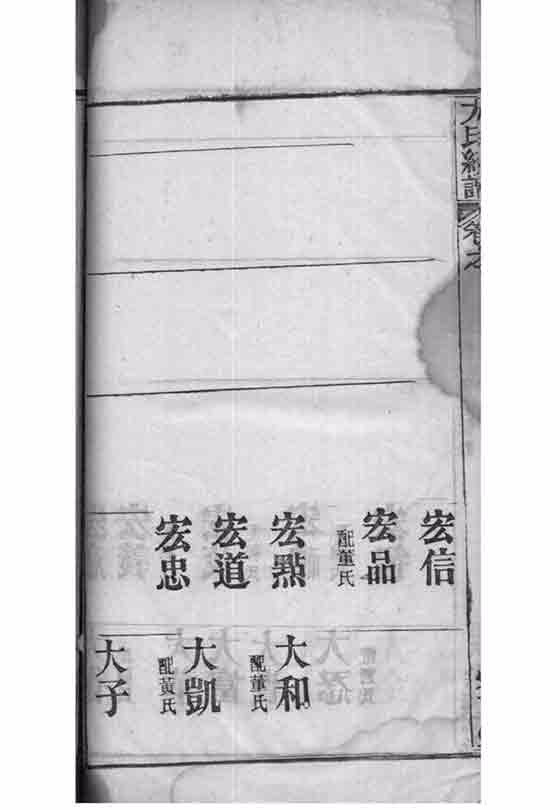 氏譜卷之
宏信
宏品
配董氏
宏點
宏道
宏忠
大和
配董氏
大凱
配黃氏
大子